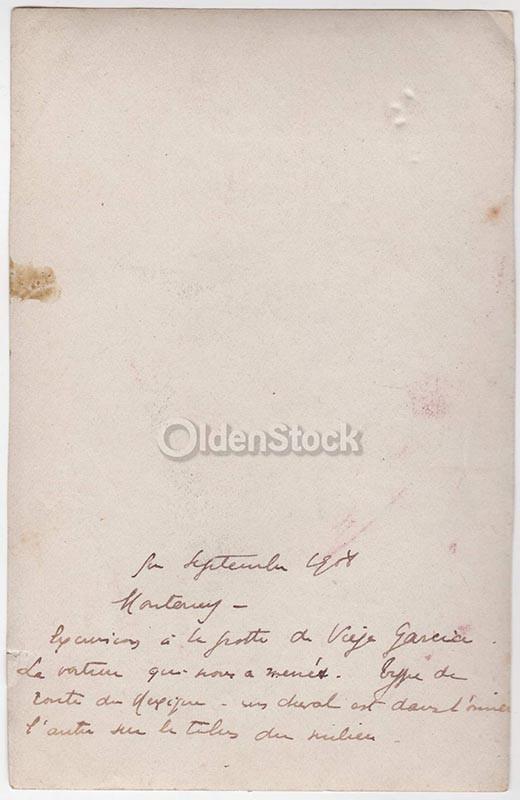 OldenStock
septembre 1908
Monterrey –
Excursion à la grotte de Vieja Garcia.
La voiture qui nous a menés. Type de
route du Mexique – un cheval est dans l'ornière
l'autre sur le talus du milieu.